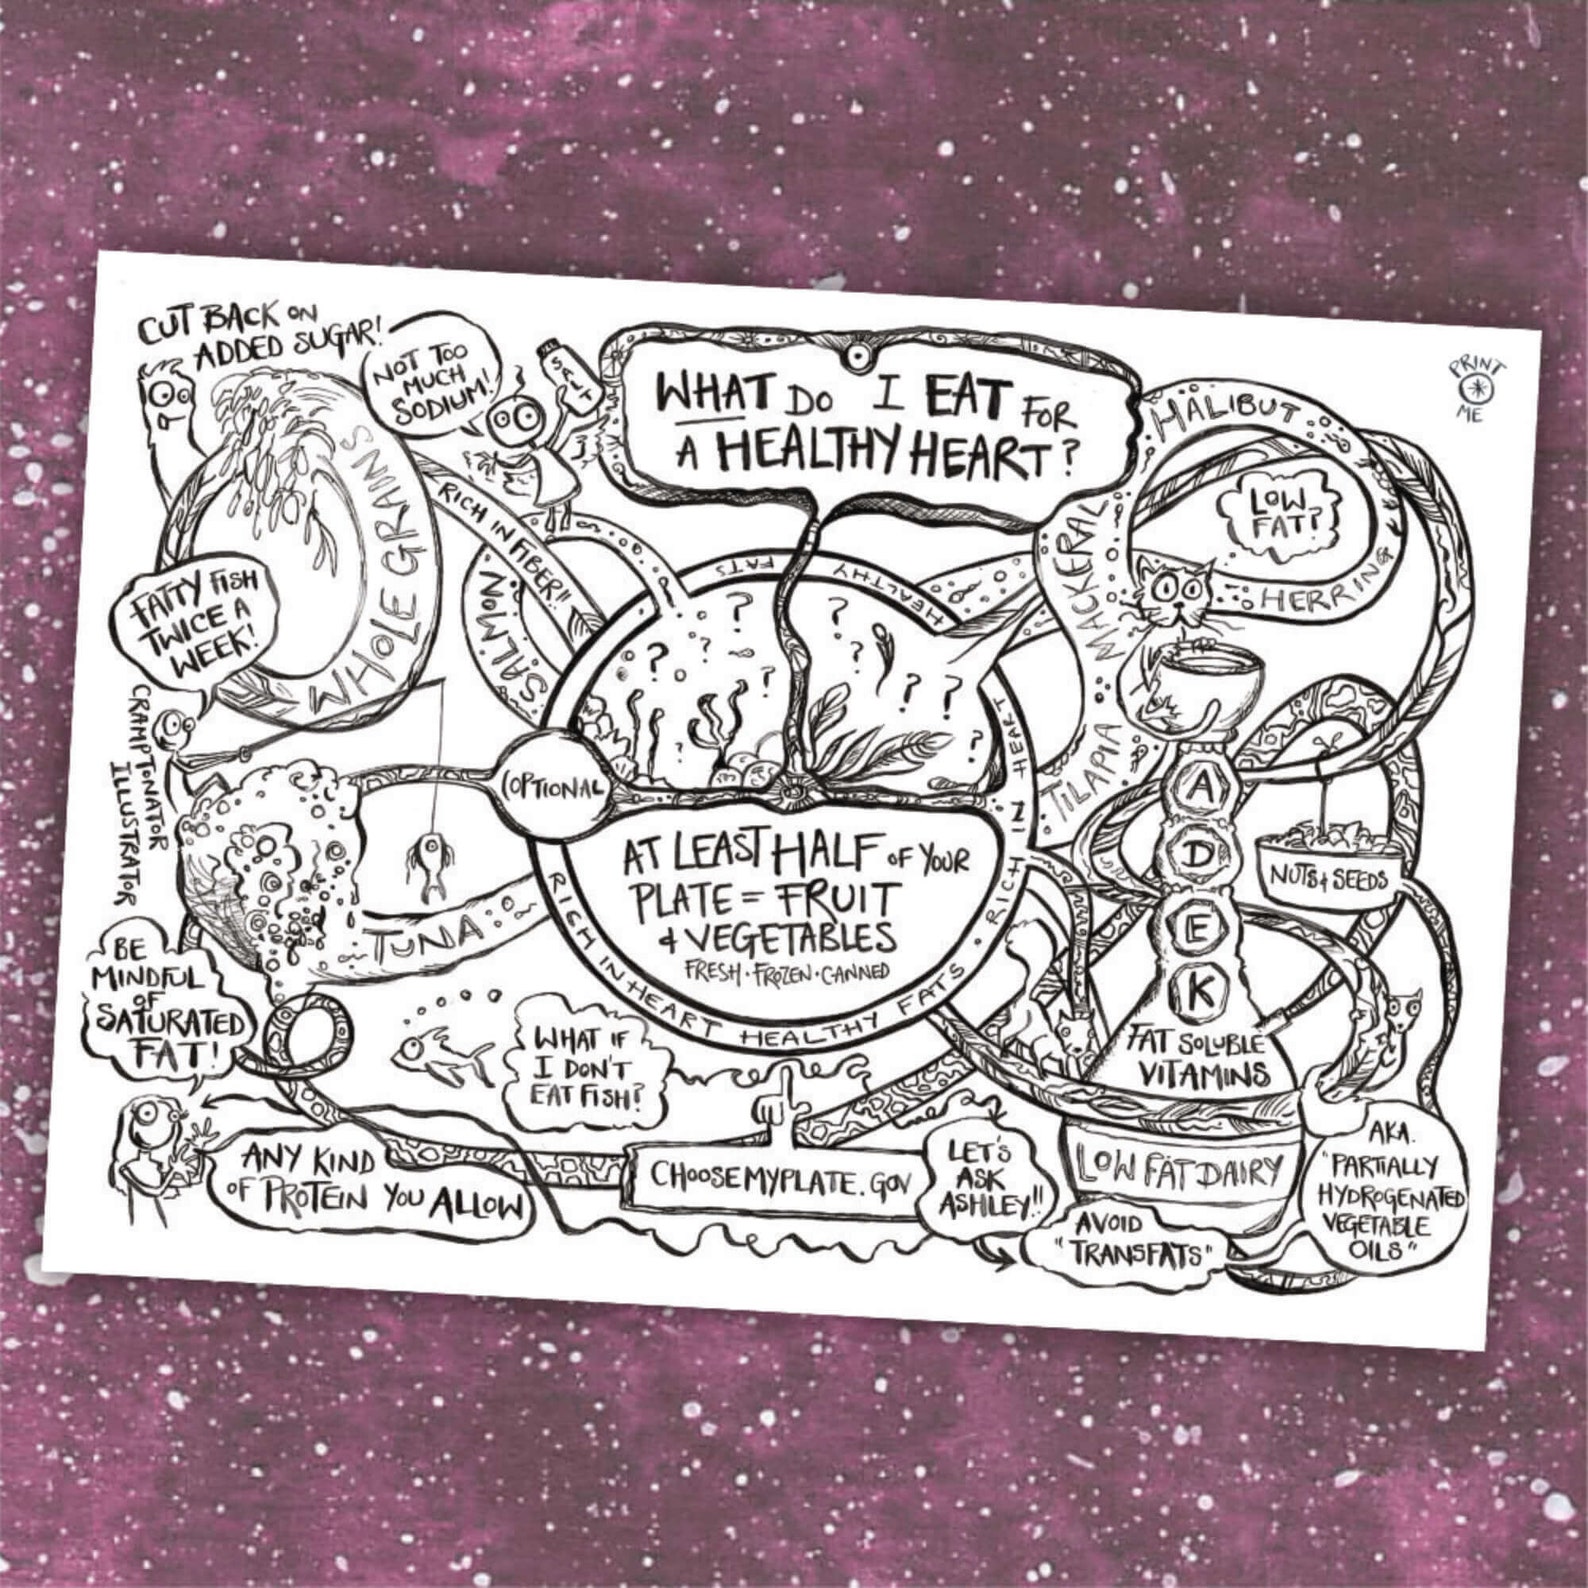 CUT BACK ON
ADDED SUGAR!
NOT TOO
MUCH
SODIUM!
SALT
WHAT DO I EAT FOR
A HEALTHY HEART?
PRINT
ME
HALIBUT
MACKERAL
LOW
FAT?
HERRING
TILAPIA
WHOLE GRAINS
RICH IN FIBER!!
SALMON
FATTY FISH
TWICE A
WEEK!
CRAMPTONATOR
ILLUSTRATOR
(OPTIONAL
? ? ? ? ?
? ? ? ? ?
RICH IN HEART HEALTHY FATS • RICH IN HEART HEALTHY FATS
AT LEAST HALF OF YOUR
PLATE = FRUIT
+ VEGETABLES
FRESH • FROZEN • CANNED
TUNA
A
D
E
K
FAT SOLUBLE
VITAMINS
NUTS + SEEDS
BE
MINDFUL
OF
SATURATED
FAT!
WHAT IF
I DON'T
EAT FISH?
ANY KIND
OF PROTEIN YOU ALLOW
CHOOSEMYPLATE.GOV
LET'S
ASK
ASHLEY!!
LOW FAT DAIRY
AVOID
"TRANSFATS"
AKA.
"PARTIALLY
HYDROGENATED
VEGETABLE
OILS"